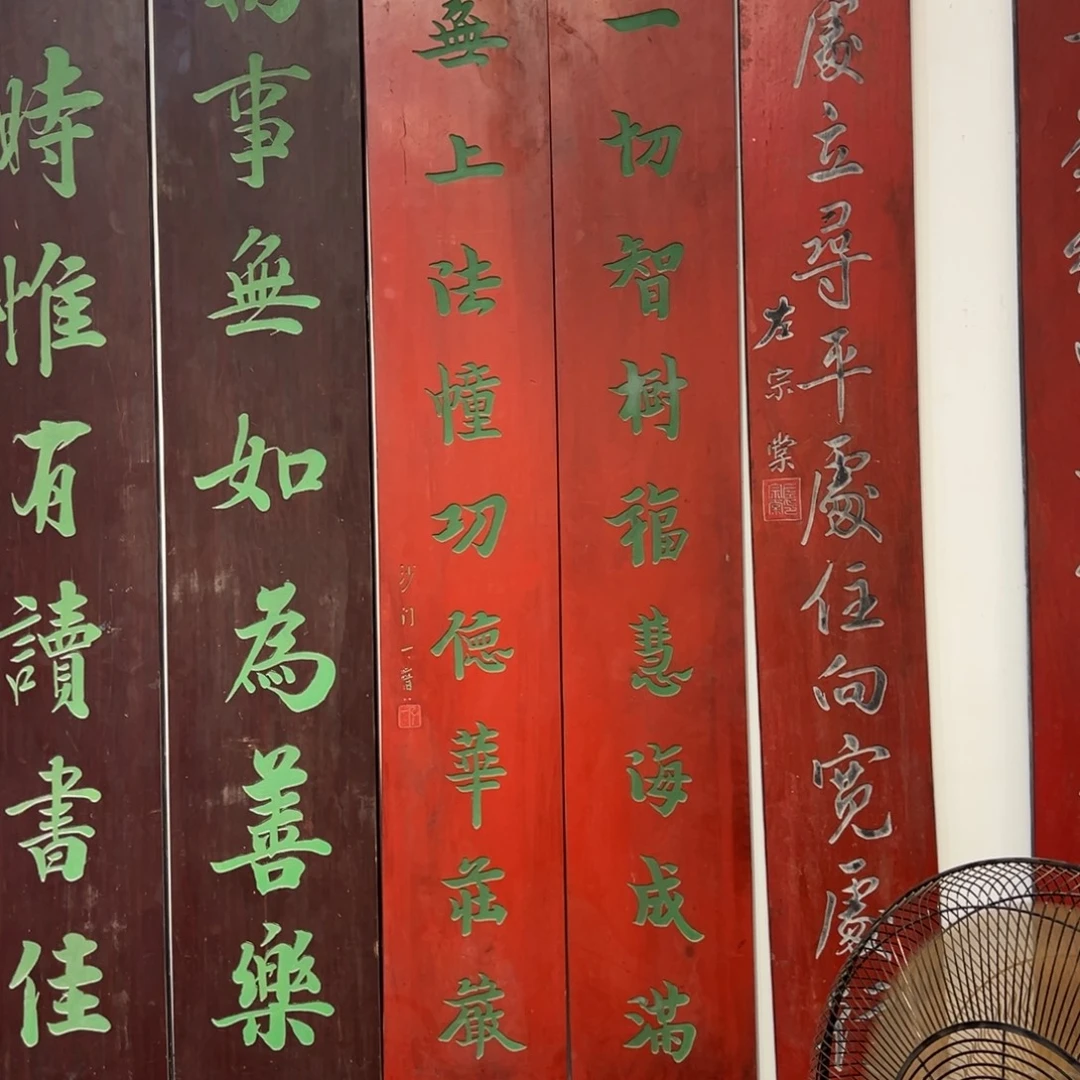 處立尋平處住向寬處
左宗棠
一切智樹福慧海成滿
無上法幢功德華莊嚴
沙门一音
事無如為善樂
時惟有讀書佳